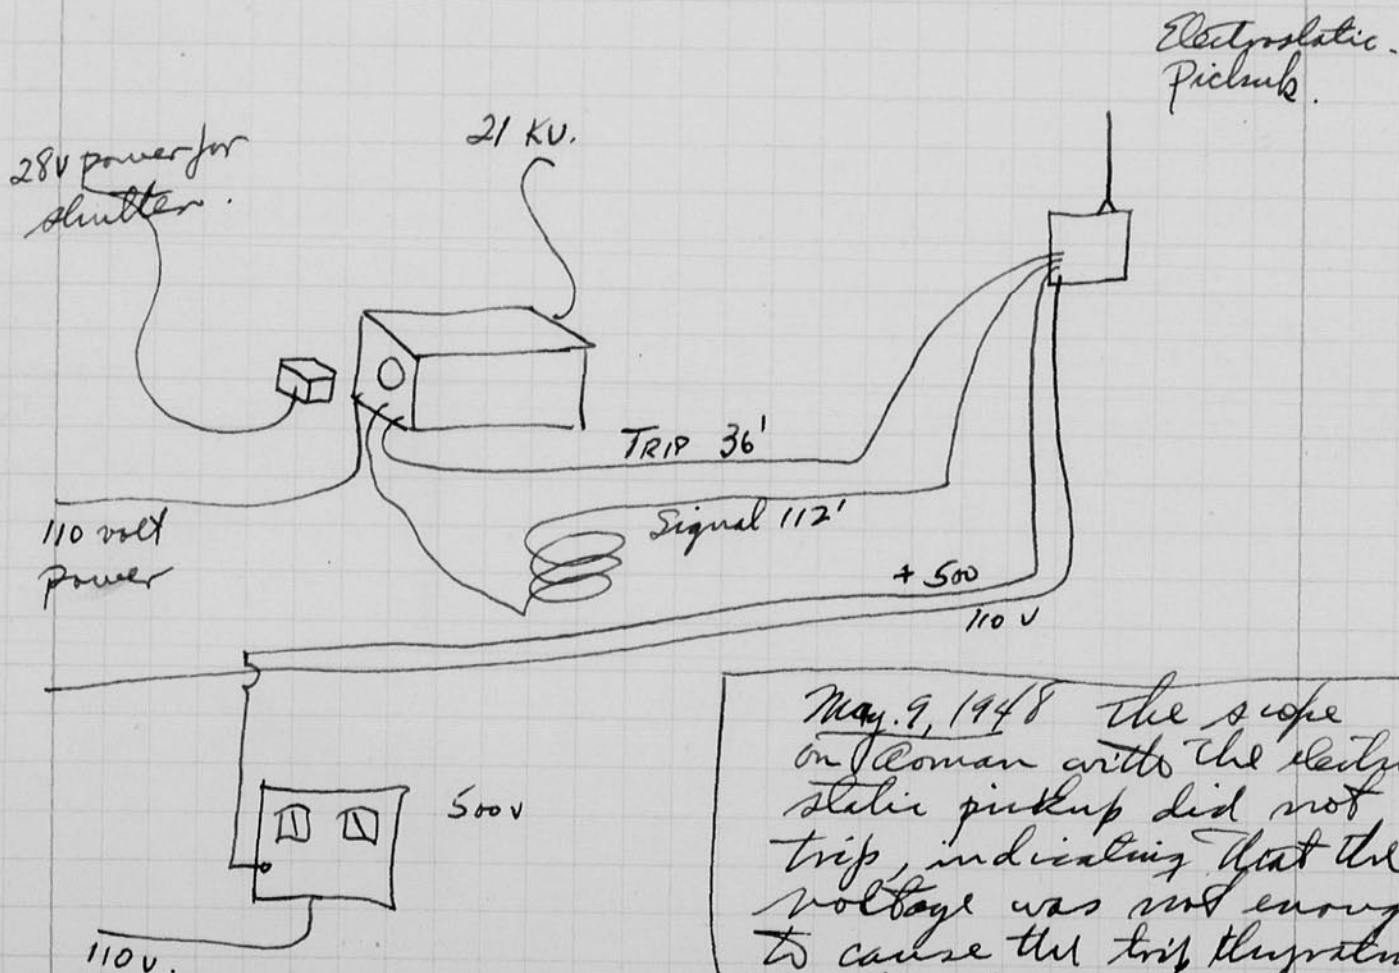 Electrostatic
Pickup.
21 KV.
28V power for
shutter.
TRIP 36'
Signal 112'
110 volt
power
+ 500
110 V
500 V
110 V.
May. 9, 1948 The scope
on with the electro
static pickup did not
trip, indicating that the
voltage was not enoug
to cause the trip thyratr